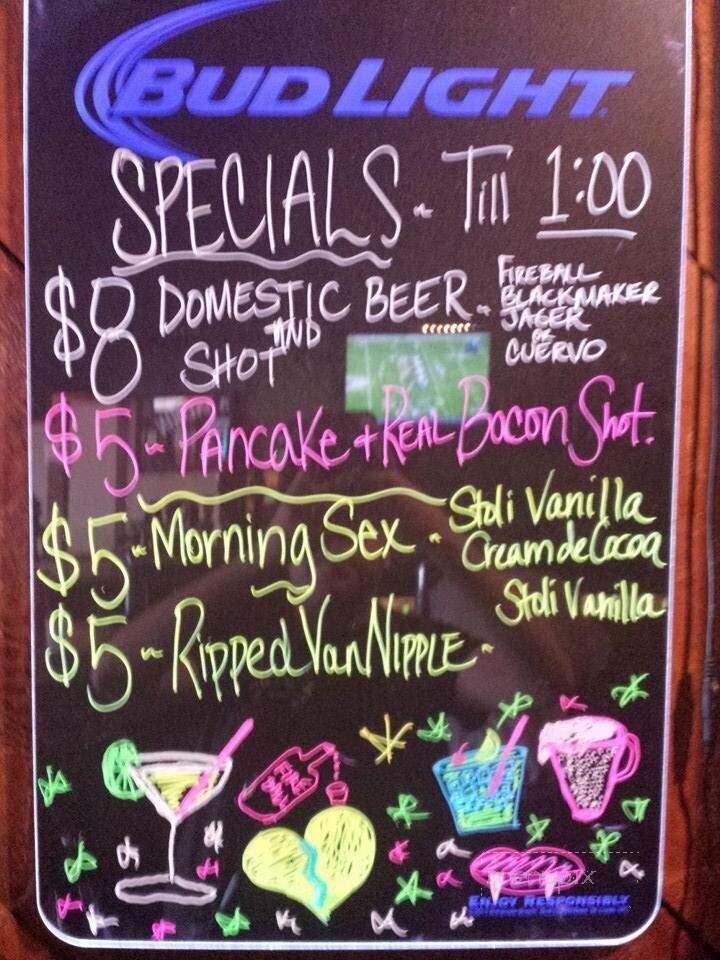 BUD LIGHT
SPECIALS - Till 1:00
$8 DOMESTIC BEER -
AND
SHOT
FIREBALL
BLACKMAKER
JAGER
OR
CUERVO
$5 - Pancake + REAL Bacon Shot.
$5 - Morning Sex -
Stoli Vanilla
Cream de Cocoa
Stoli Vanilla
$5 - Ripped Van NIPPLE -
ENJOY RESPONSIBLY